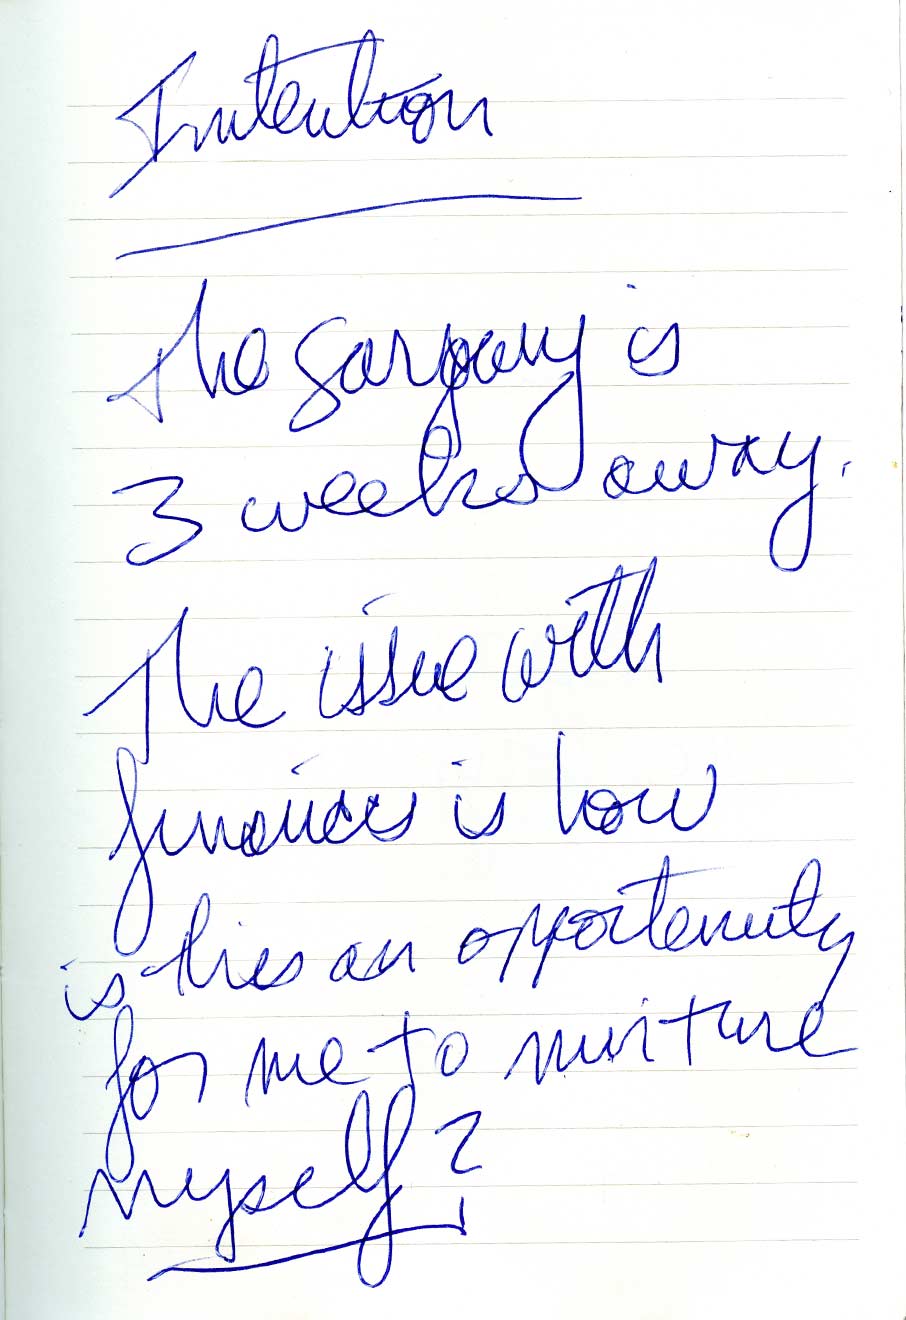 Intention
The surgery is
3 weeks away.
The issue with
finances is how
is this an opportunity
for me to nurture
myself?